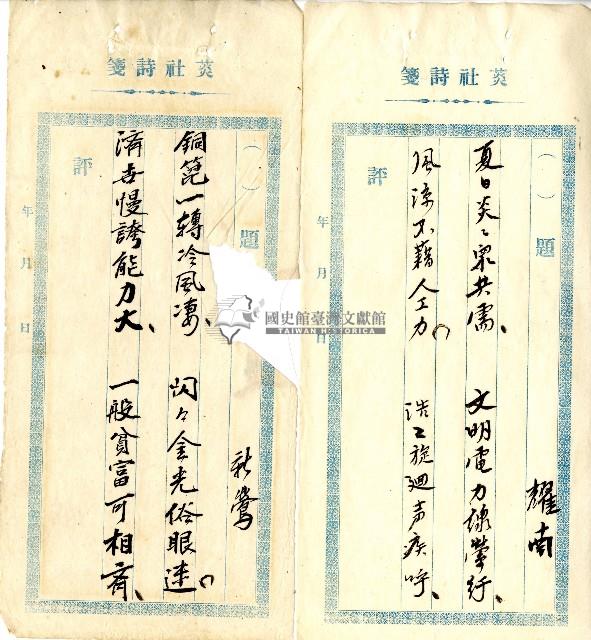 菼社詩箋
( )題
耀南
夏日炎々眾共需、文明電力線縈紆
風涼不藉人工力、浩々旋迴声疾呼、
評
年 月 日
菼社詩箋
( )題
新鶯
銅箆一轉冷風凄、閃々金光俗眼迷、
濟世慢誇能力大、一般貧富可相齊、
評
年 月 日
國史館臺灣文獻館
TAIWAN HISTORICA